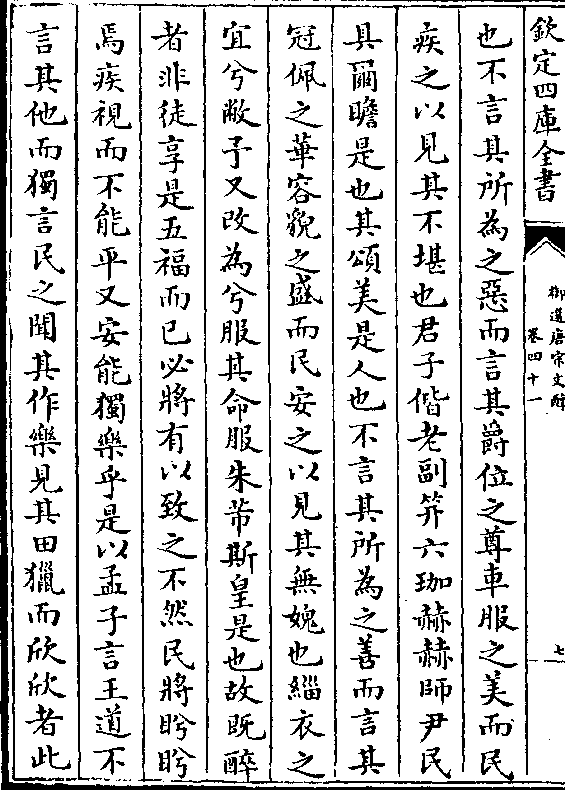 欽定四庫全書
御選唐宋文醇
卷四十一
七
也不言其所為之惡而言其爵位之尊車服之美而民
疾之以見其不堪也君子偕老副笄六珈赫赫師尹民
具爾瞻是也其頌美是人也不言其所為之善而言其
冠佩之華容貌之盛而民安之以見其無媿也緇衣之
宜兮敝予又改為兮服其命服朱芾斯皇是也故既醉
者非徒享是五福而已必將有以致之不然民將盻盻
焉疾視而不能平又安能獨樂乎是以孟子言王道不
言其他而獨言民之聞其作樂見其田獵而欣欣者此